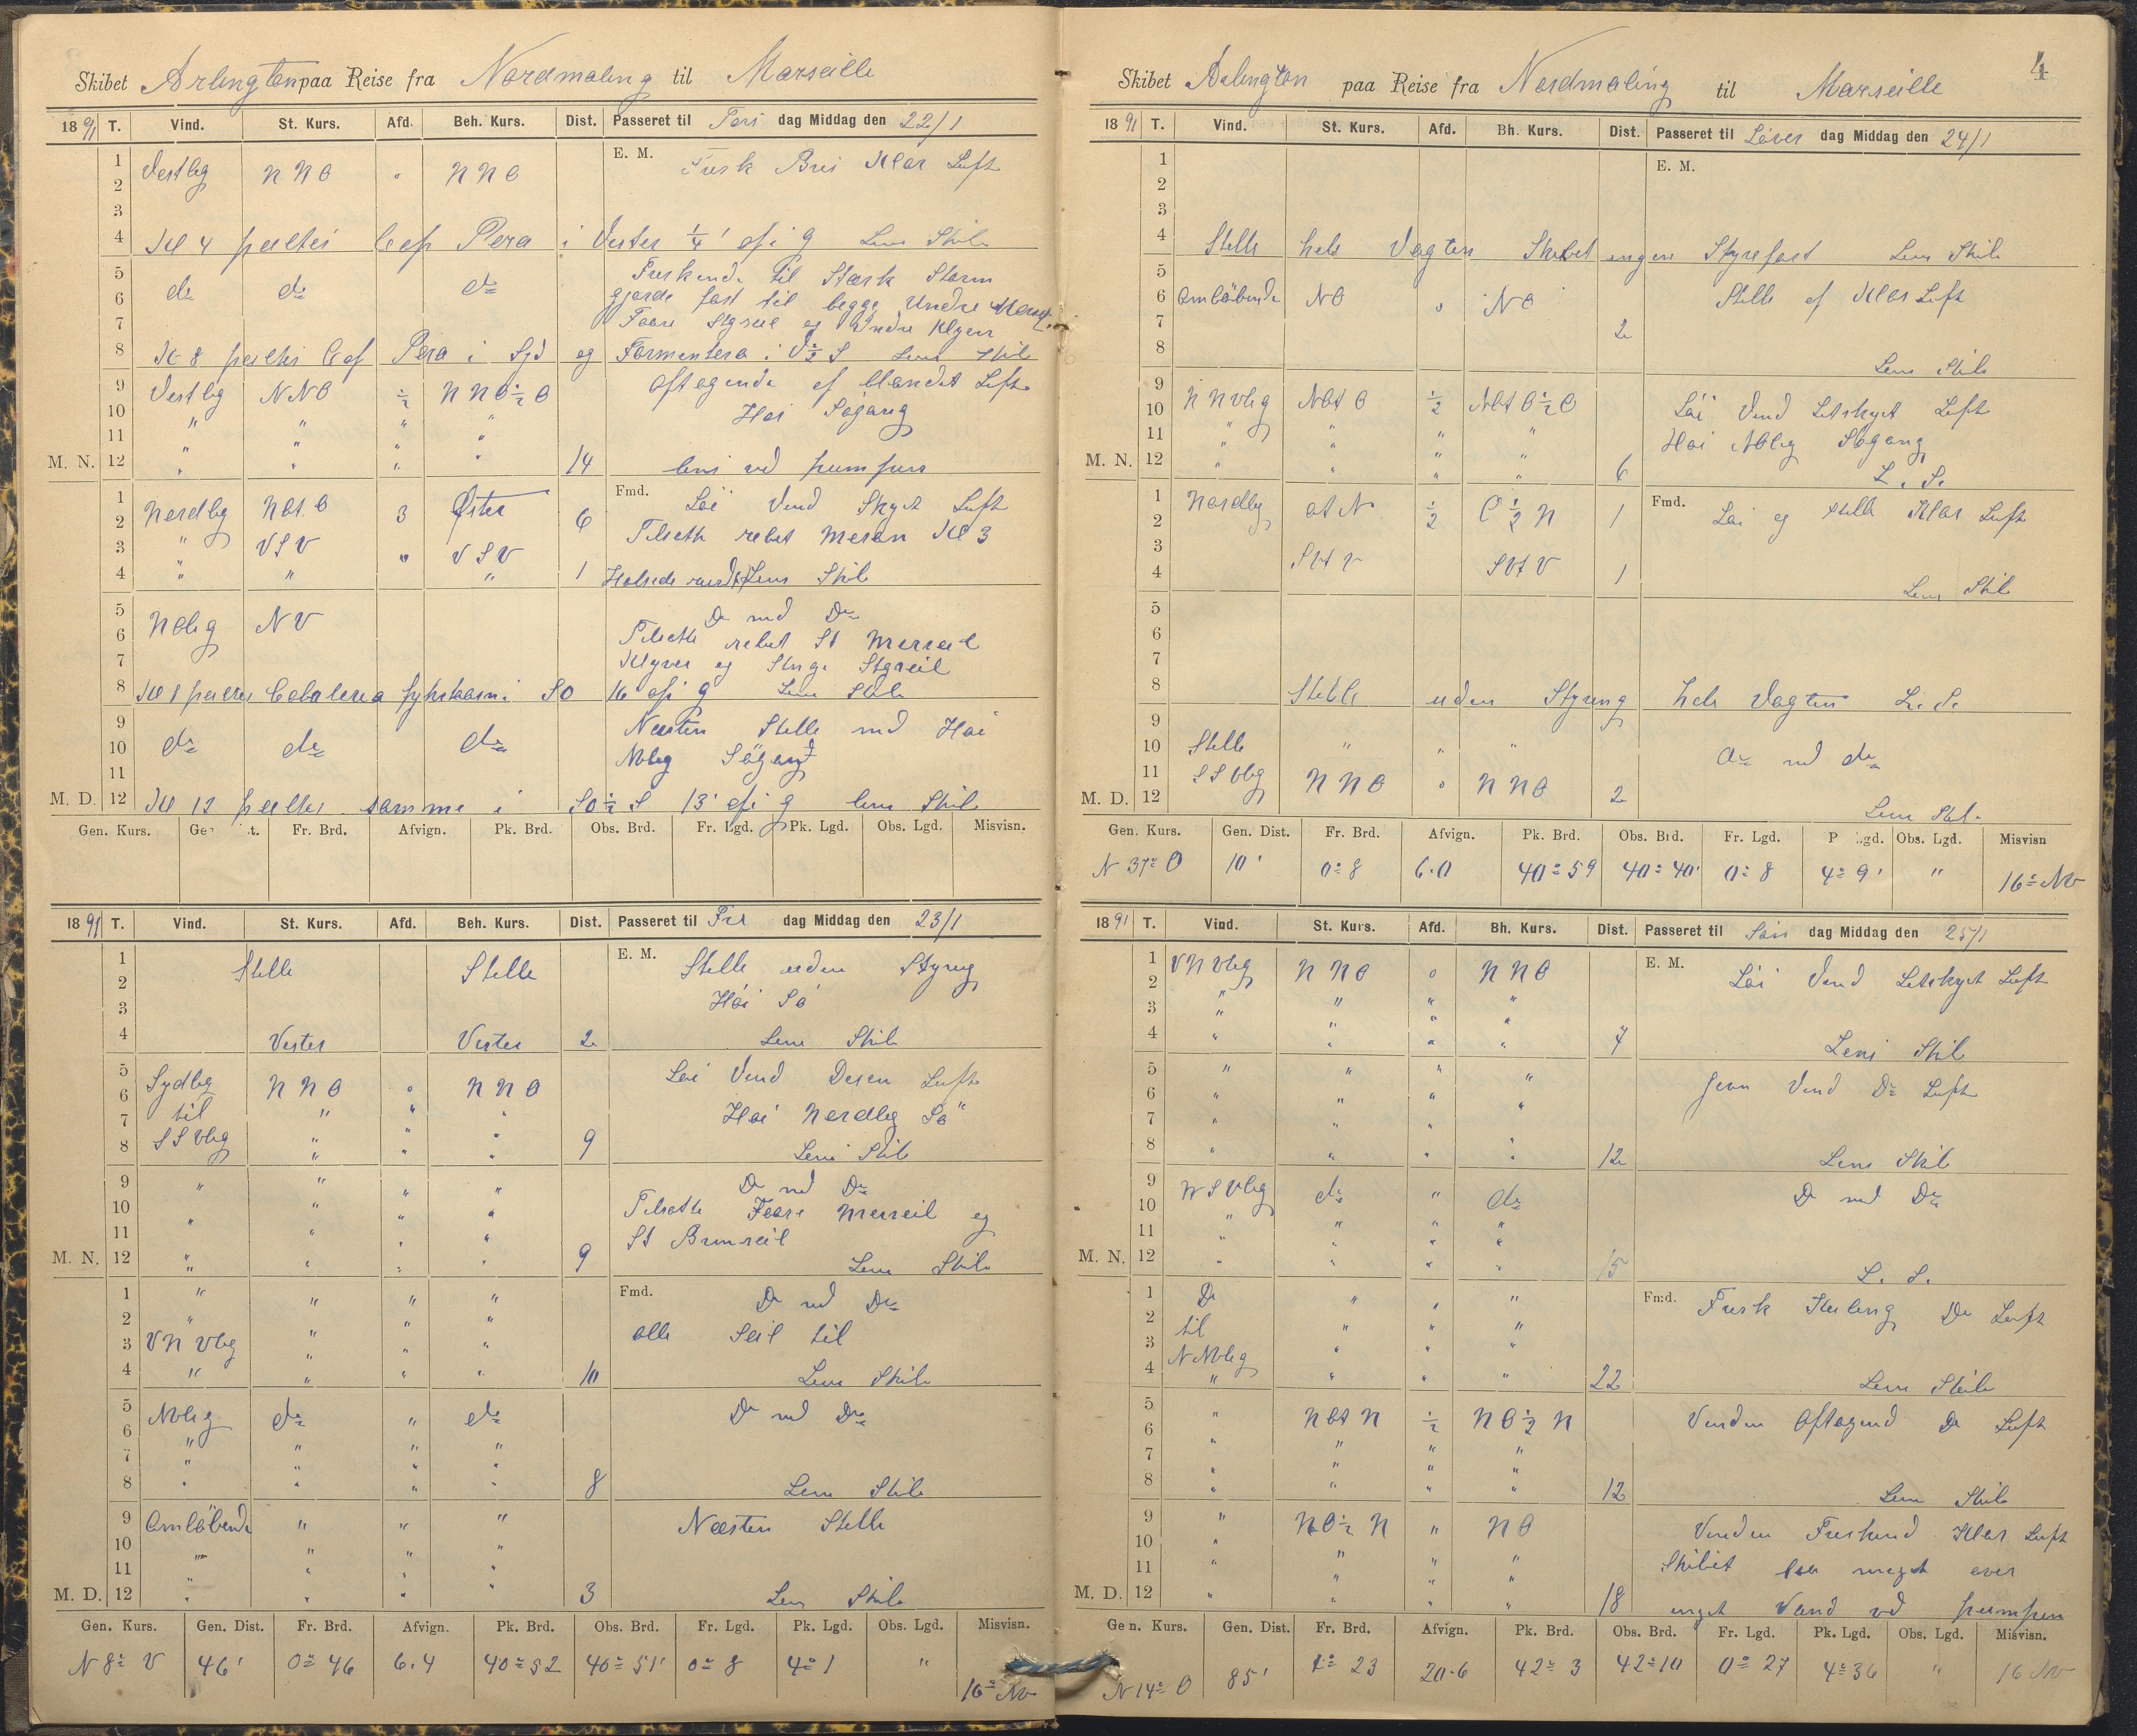 Skibet Arlington paa Reise fra Nordmaling til Marseille
1891 T. Vind. St. Kurs. Afd. Beh. Kurs. Dist. Passeret til Tors dag Middag den 22/1
E. M.
1 Vestlig NNO " NNO Frisk Bris Klar Luft
2
3
4 Kl 4 peiltes Cap Pera i Vester 1/4' ofi g Lens Skib
5 do do do Friskende til Stærk Storm
6 gjorde fast til begge Undre Mers
7 Faare Stgseil og Indre Klyver
8 Kl 8 peiltes C af Pera i Syd og Formentera i V½S Lens Skib
9 Vestlig NNO ½ NNO½O Aftagende af blandet Luft
10 " " " " Høi Sögang
11 " " " "
M. N. 12 " " " " 14 lens ved pumpen
Fmd.
1 Nordlig Löi Vind Skyet Luft
2 NOtO 3 Øster 6 Tilsatte rebet Mesan Kl 3
3 " VSV " VSV
4 " " " 1 Halsede rundt Lens Skib
5 NOlig NV Do med Do
6 Tilsatte rebet St Merseil
7 Klyver og Stnge Stgseil
8 Kl 8 peiltes Cabaleria fyhrtaarn i SO 16' ofi g Lens Skib
9 do do do Næsten Stille med Høi
10 NOlig Sögang
11
M. D. 12 Kl 12 peiltes samme i SO½S 13' ofi g lens Skib
Gen. Kurs. Gen. Dist. Fr. Brd. Afvign. Pk. Brd. Obs. Brd. Fr. Lgd. Pk. Lgd. Obs. Lgd. Misvisn.
1891 T. Vind. St. Kurs. Afd. Beh. Kurs. Dist. Passeret til Fre dag Middag den 23/1
E. M.
1 Stille Stille Stille uden Styring
2 Höi Sö
3
4 Vester Vester 2 Lens Skib
5 Sydlig NNO " NNO Löi Vind Disen Luft
6 til " " " Høi Nordlig Sö
7 SSVlig " " "
8 " " " 9 Lens Skib
9 " " " " Do med Do
10 " " " Tilsatte Faare Merseil og
11 " " " " St Bramseil
M. N. 12 " " " " 9 Lens Skib
Fmd.
1 " " " " Do med Do
2 " " " " alle Seil til
3 VNVlig " " "
4 " " " " 10 Lens Skib
5 NOlig do " do Do med Do
6 " " " "
7 " " " "
8 " " " " 8 Lens Skib
9 Omlöbende " " " Næsten Stille
10 " " " "
11 " " " "
M. D. 12 " " " " 3 Lens Skib
Gen. Kurs. Gen. Dist. Fr. Brd. Afvign. Pk. Brd. Obs. Brd. Fr. Lgd. Pk. Lgd. Obs. Lgd. Misvisn.
N 8° V 46' 0° 46 6.4 40° 52 40° 51' 0° 8 4° 1 " 16° NV
4
Skibet Arlington paa Reise fra Nordmaling til Marseille
1891 T. Vind. St. Kurs. Afd. Bh. Kurs. Dist. Passeret til Löver dag Middag den 24/1
E. M.
1
2
3
4 Stille hele Vagten Skibet ingen Styrefart Lens Skib
5
6 Omlöbende NO " NO Stille af Klar Luft
7 2
8 Lens Skib
9 NNVlig NOtO ½ NOtO½O Löi Vind Letskyet Luft
10 " " " " Høi NOlig Sögang
11 " " " "
M. N. 12 " " " " 6 L. S.
Fmd.
1 Nordlig OtN ½ O½N 1 Löi og Stille Klar Luft
2
3 SVtV SVtV
4 1 Lens Skib
5
6
7
8 Stille uden Styring hele Vagten L. S.
9
10 Stille " " " Do med do
11 SSVlig NNO " NNO
M. D. 12 2 Lens Skib
Gen. Kurs. Gen. Dist. Fr. Brd. Afvign. Pk. Brd. Obs. Brd. Fr. Lgd. P Lgd. Obs. Lgd. Misvisn
N 37° O 10' 0° 8 6.0 40° 59 40° 40' 0° 8 4° 9' " 16° NV
1891 T. Vind. St. Kurs. Afd. Bh. Kurs. Dist. Passeret til Sön dag Middag den 25/1
E. M.
1 VNVlig NNO 0 NNO Löi Vind Letskyet Luft
2 " " " "
3 " " " "
4 " " " " 7 Lens Skib
5 " " " " Jevn Vind Do Luft
6 " " " "
7 " " " "
8 " " " " 12 Lens Skib
9 VSVlig do " do Do med Do
10 " " " "
11 " " " "
M. N. 12 " " " " 15 L. S.
Fmd.
1 Do " " " Frisk Kuling Do Luft
2 til " " "
3 NNOlig " " "
4 " " " " 22 Lens Skib
5 " NOtN ½ NO½N Vinden Aftagend Do Luft
6 " " " "
7 " " " "
8 " " " " 12 Lens Skib
9 " NO½N " NO Vinden Friskend Klar Luft
10 " " " " Skibet laa meget over
11 " " " "
M. D. 12 " " " " 18 inget Vand ved pumpen
Gen. Kurs. Gen. Dist. Fr. Brd. Afvign. Pk. Brd. Obs. Brd. Fr. Lgd. Pk. Lgd. Obs. Lgd. Misvisn.
N 14° O 85' 1° 23 20.6 42° 3 42° 10 0° 27 4° 36 " 16 NV